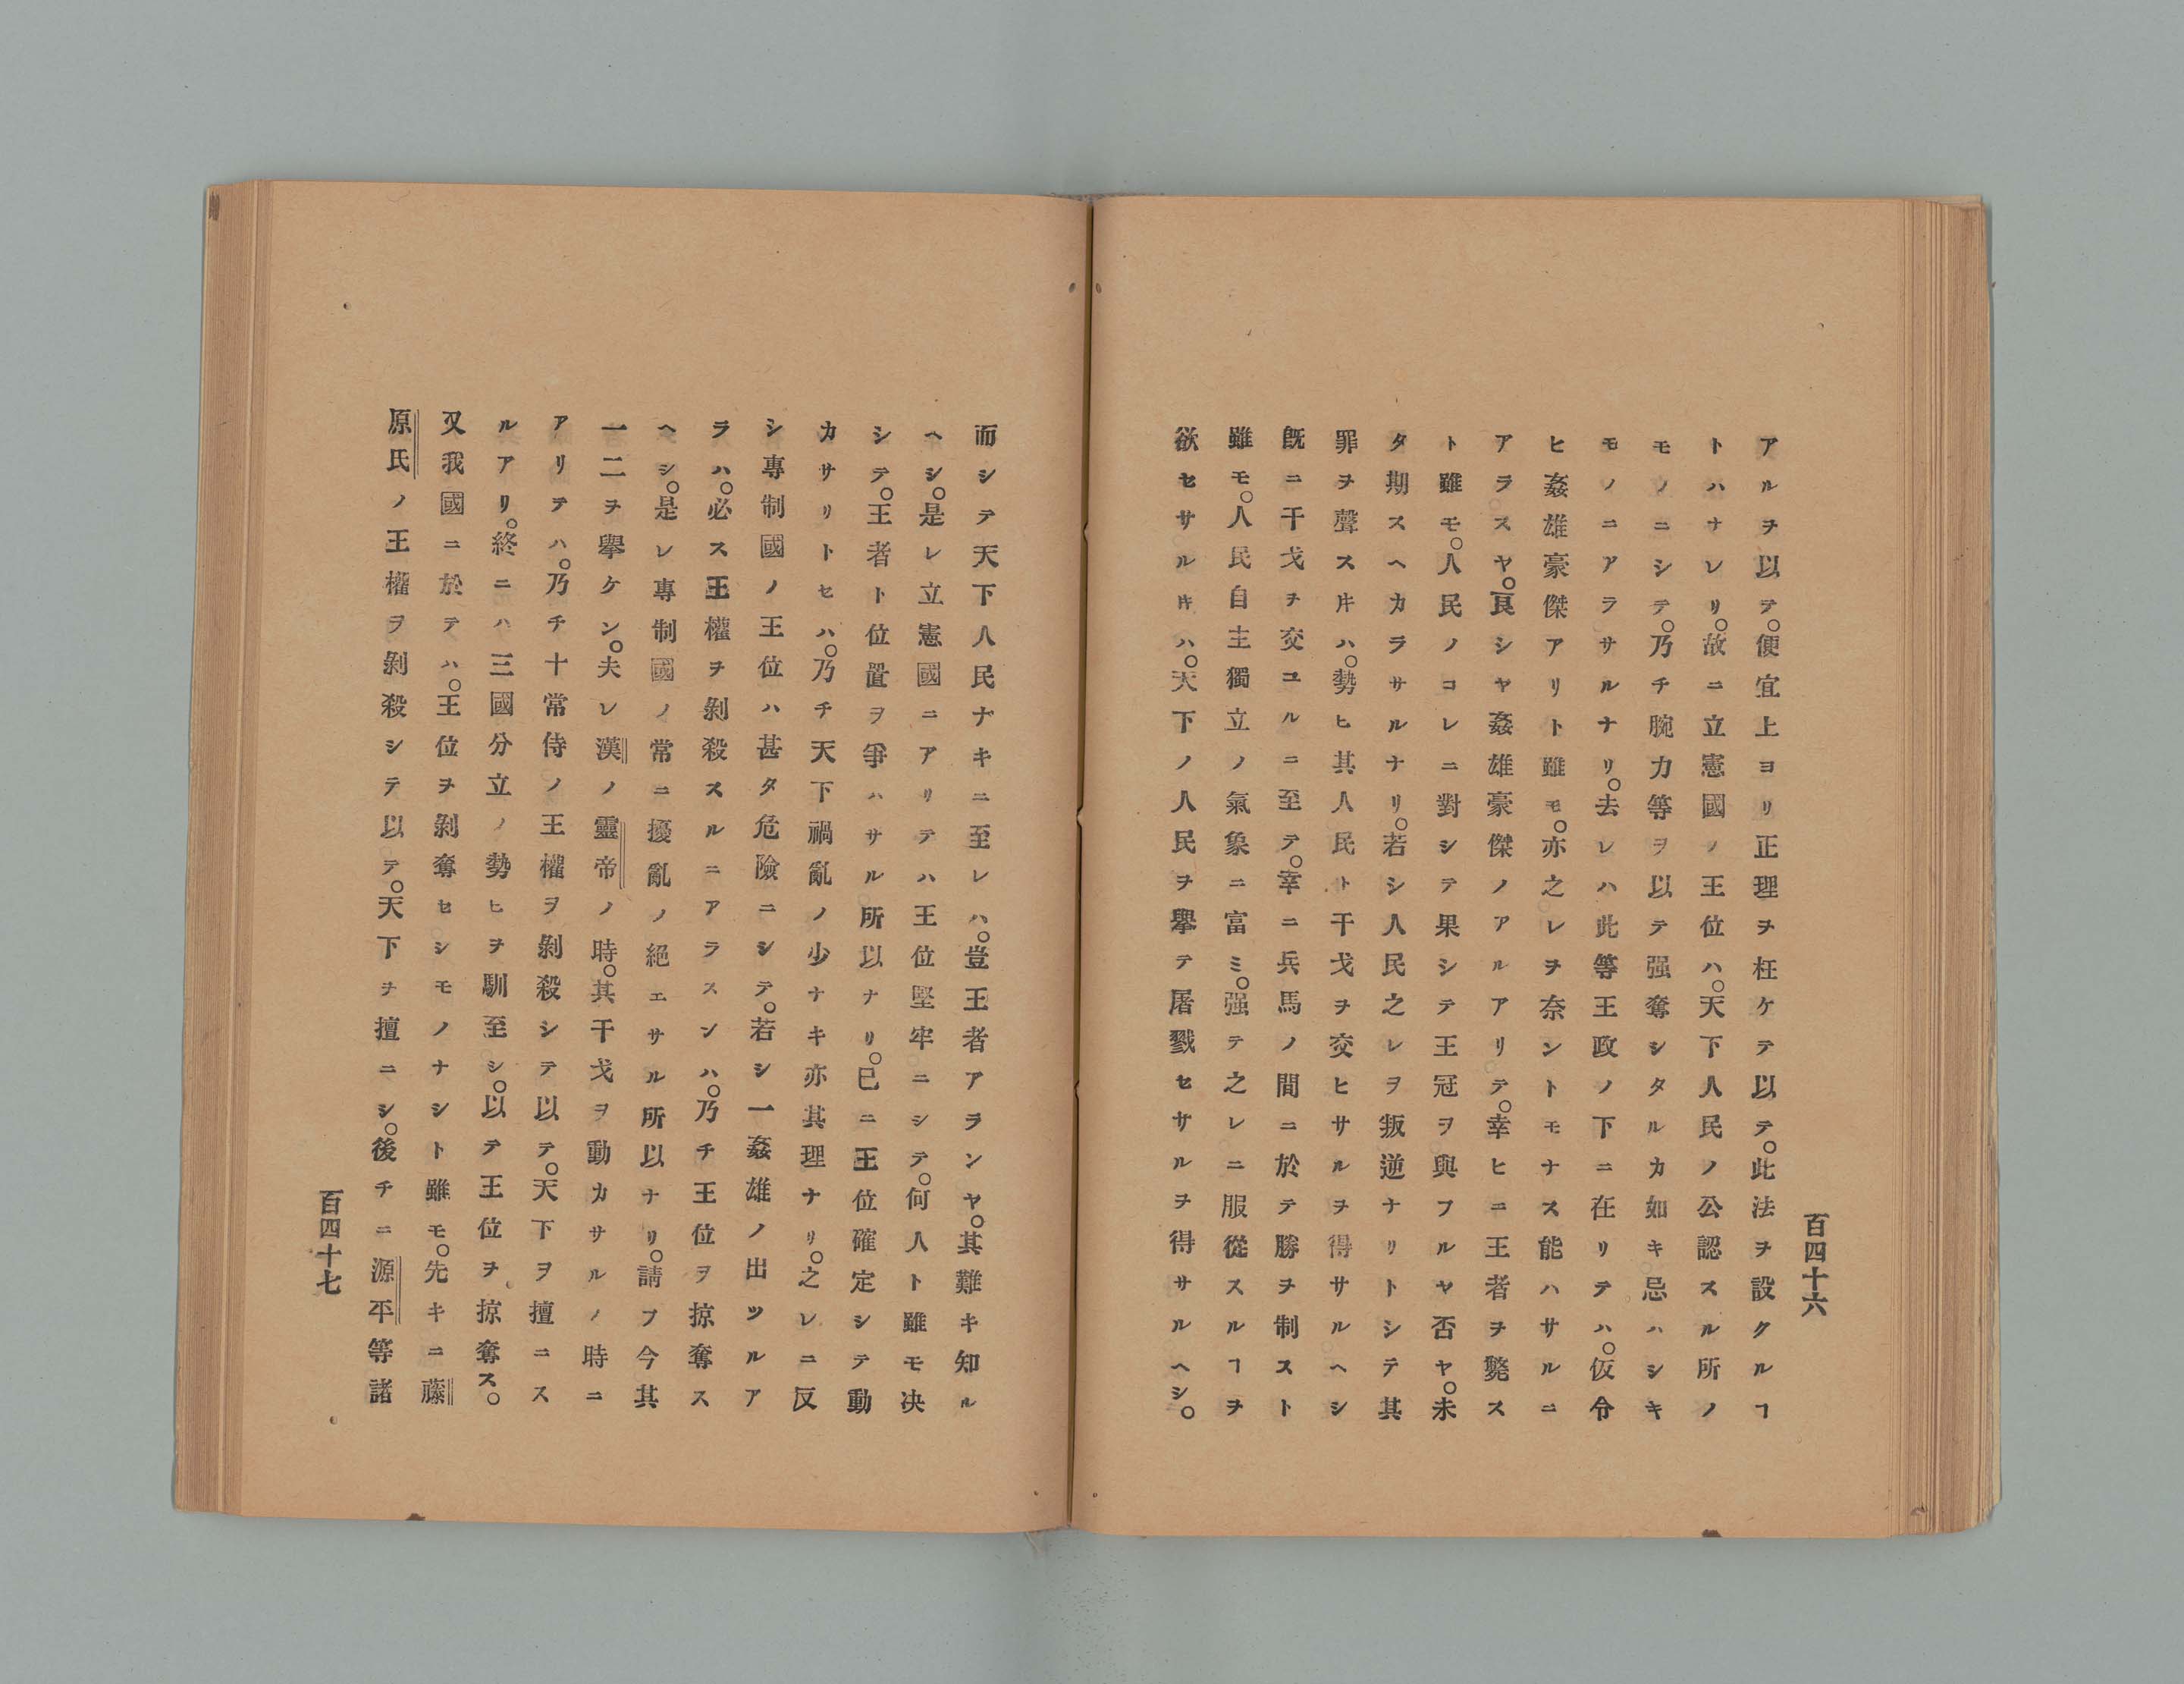 百四十六
アルヲ以テ。便宜上ヨリ正理ヲ枉ケテ以テ。此法ヲ設クルヿ
トハナレリ。故ニ立憲國ノ王位ハ。天下人民ノ公認スル所ノ
モノニシテ。乃チ腕力等ヲ以テ强奪シタルカ如キ忌ハシキ
モノニアラサルナリ。去レハ此等王政ノ下ニ在リテハ。仮令
ヒ姦雄豪傑アリト雖モ。亦之レヲ奈ントモナス能ハサルニ
アラスヤ。良シヤ姦雄豪傑ノアルアリテ。幸ヒニ王者ヲ斃ス
ト雖モ。人民ノコレニ對シテ果シテ王冠ヲ與フルヤ否ヤ。未
タ期スヘカラサルナリ。若シ人民之レヲ叛逆ナリトシテ其
罪ヲ聲スルㇵ片ハ。勢ヒ其人民ト干戈ヲ交ヒサルヲ得サルヘシ
既ニ干戈ヲ交ユルニ至テ。幸ニ兵馬ノ間ニ於テ勝ヲ制スト
雖モ。人民自主獨立ノ氣象ニ富ミ。强テ之レニ服從スルヿヲ
欲セサル片ハ。天下ノ人民ヲ擧テ屠戮セサルヲ得サルヘシ。
而シテ天下人民ナキニ至レハ。豈王者アランヤ。其難キ知ル
ヘシ。是レ立憲國ニアリテハ王位堅牢ニシテ。何人ト雖モ决
シテ。王者ト位置ヲ爭ハサル所以ナリ。已ニ王位確定シテ動
カサリトセハ。乃チ天下禍亂ノ少ナキ亦其理ナリ。之レニ反
シ專制國ノ王位ハ甚タ危險ニシテ。若シ一姦雄ノ出ツルア
ラハ。必ス王權ヲ剝殺スルニアラスンハ。乃チ王位ヲ掠奪ス
ヘシ。是レ專制國ノ常ニ擾亂ノ絕エサル所以ナリ。請フ今其
一二ヲ擧ケン。夫レ漢ノ靈帝ノ時。其干戈ヲ動カサルノ時ニ
アリテハ。乃チ十常侍ノ王權ヲ剝殺シテ以テ。天下ヲ擅ニス
ルアリ。終ニハ三國分立ノ勢ヒヲ馴至シ。以テ王位ヲ掠奪ス。
又我國ニ於テハ。王位ヲ剝奪セシモノナシト雖モ。先キニ藤
原氏ノ王權ヲ剝殺シテ以テ。天下ヲ擅ニシ。後チニ源平等諸
百四十七